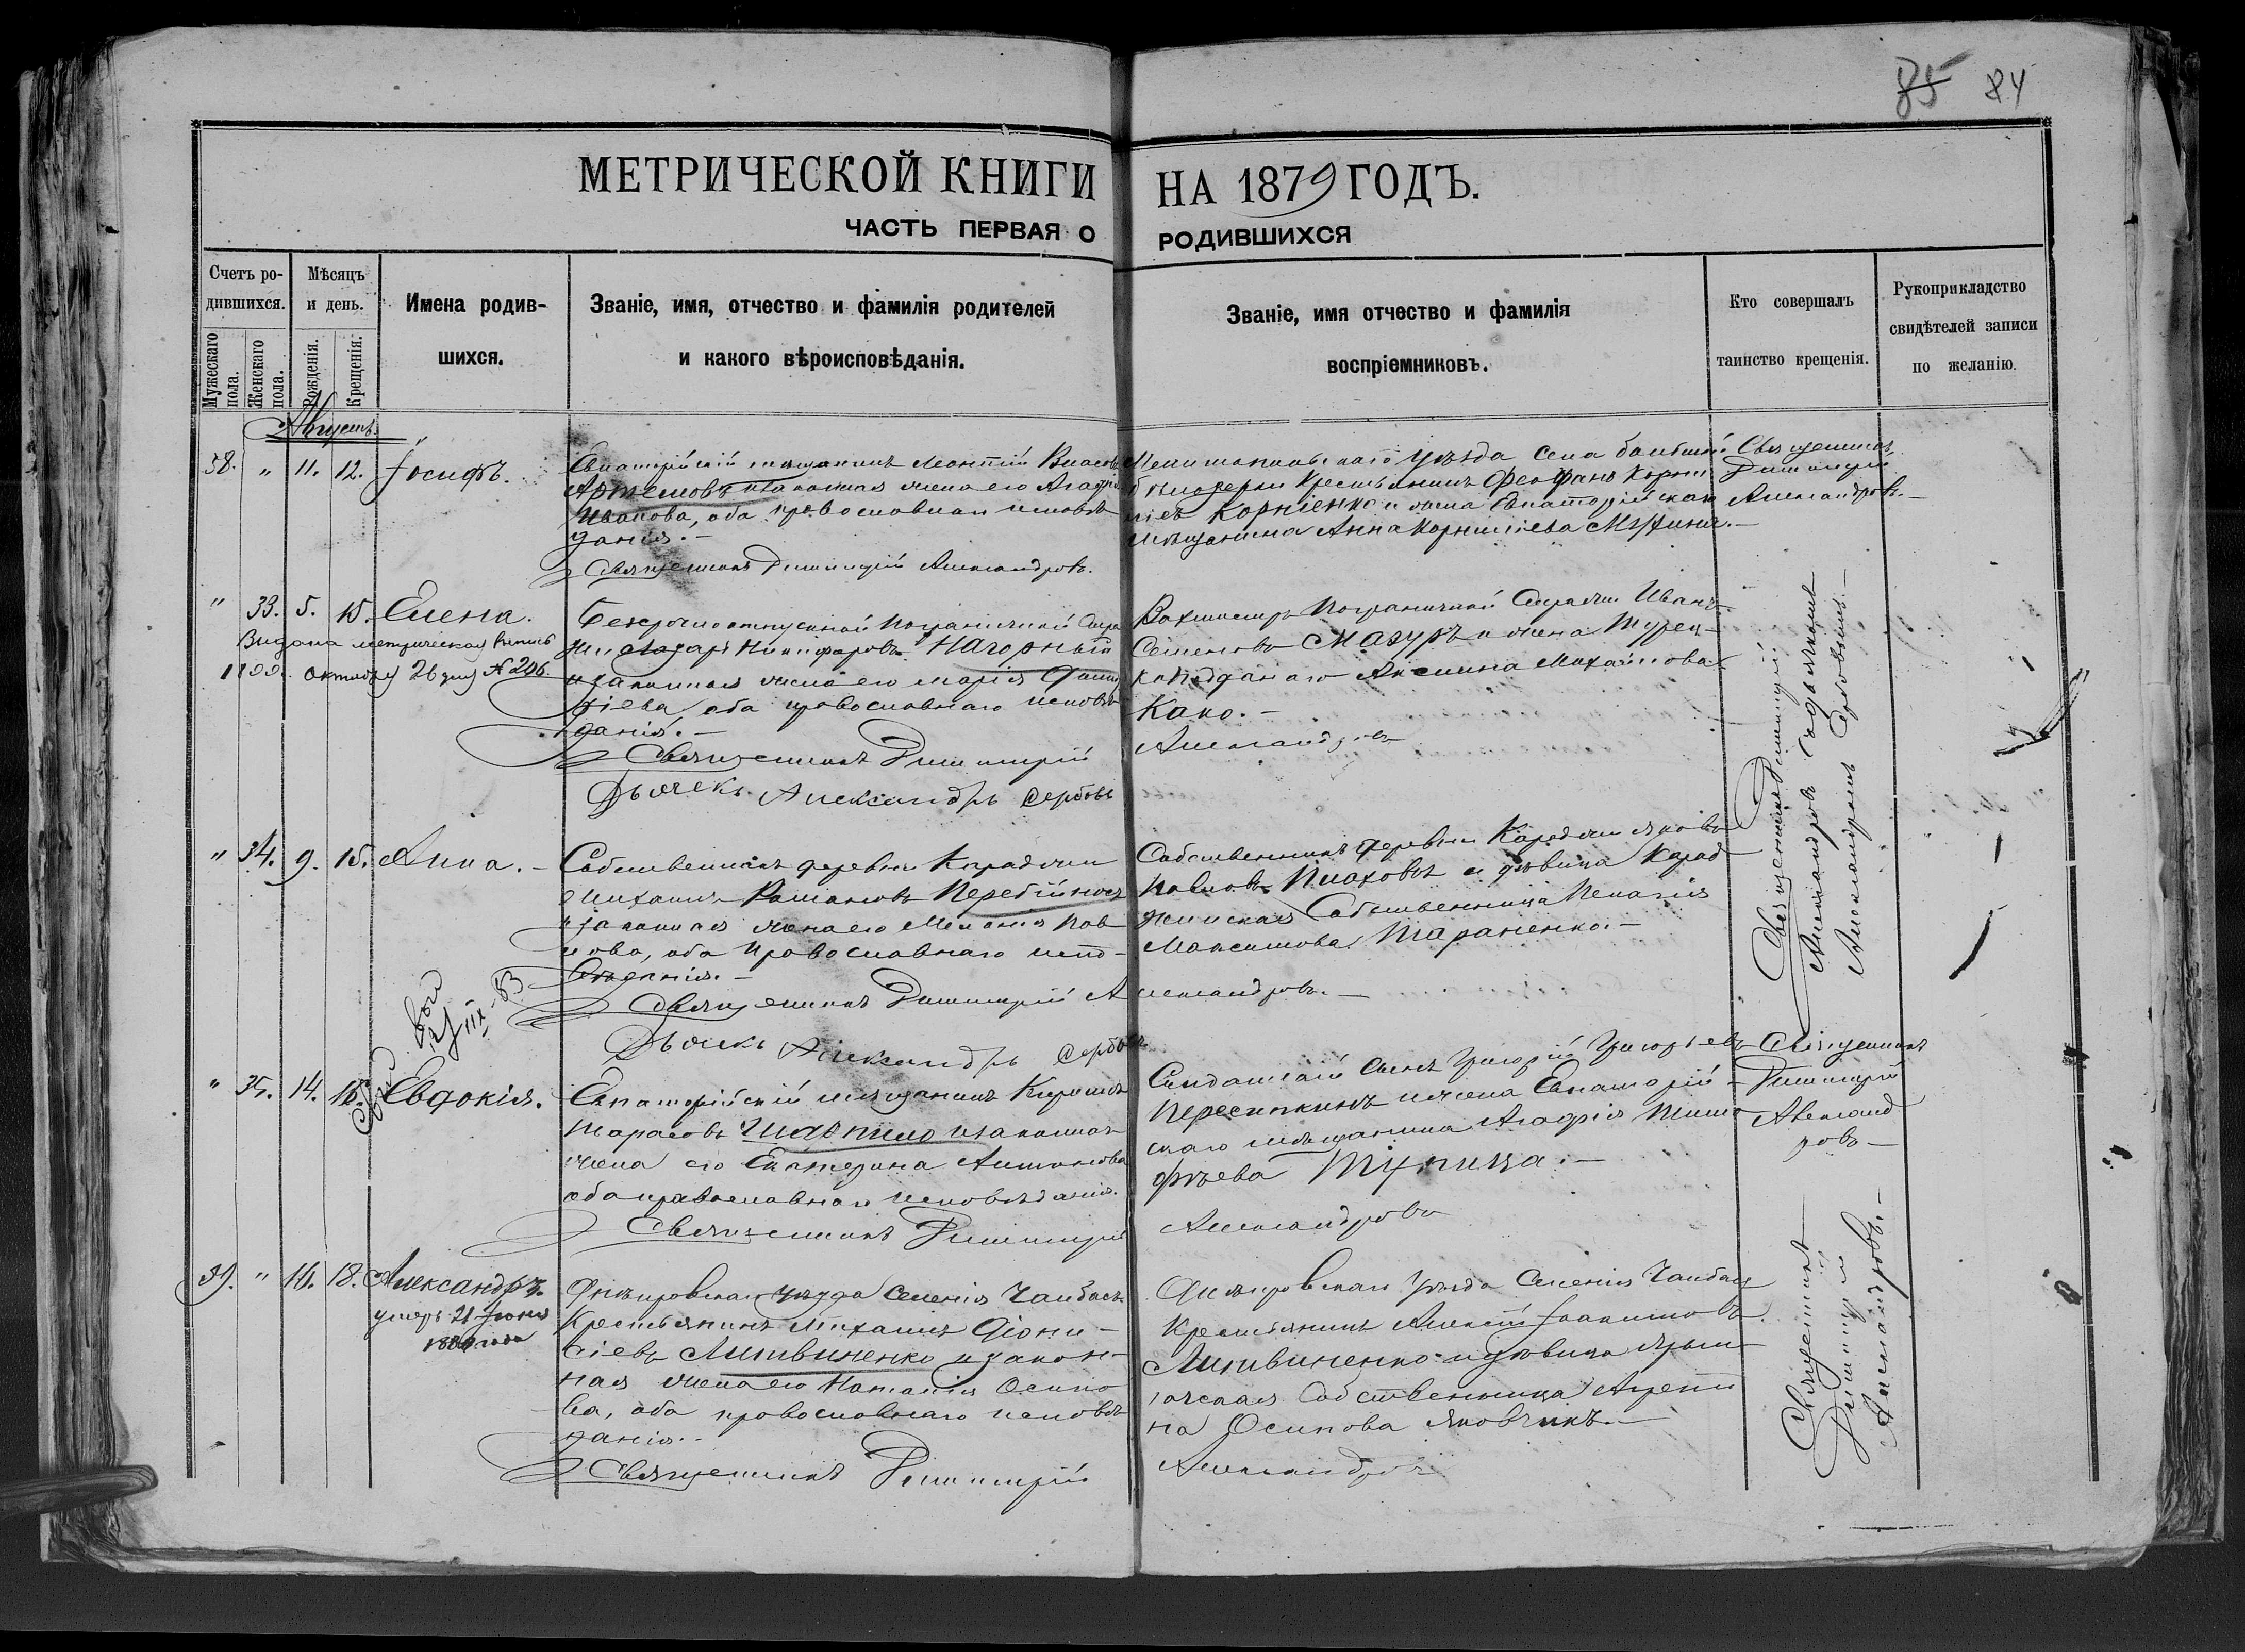 85 84
МЕТРИЧЕСКОЙ КНИГИ НА 1879 ГОДЪ.
ЧАСТЬ ПЕРВАЯ О РОДИВШИХСЯ
Счетъ ро-
дившихся.
Мужескаго пола.
Женскаго пола.
Мѣсяцъ
и день.
Рожденія.
Крещенія.
Имена родив-
шихся.
Званіе, имя, отчество и фамилія родителей
и какого вѣроисповѣданія.
Званіе, имя отчество и фамилія
воспріемниковъ.
Кто совершалъ
таинство крещенія.
Рукоприкладство
свидѣтелей записи
по желанію.
Августъ.
38. " 11. 12. Іосифъ.
Евпаторійскій мѣщанинъ Леонтій
Артемовъ и законная жена его
Иванова, оба православнаго исповѣ-
данія.-
Священникъ Димитрій Александровъ.
Мелитопольскаго уѣзда села большой
бѣлозерки крестьянинъ Феофанъ
Корніенко и жена Евпаторійскаго
мѣщанина Анна Корнилiева
Священникъ
Димитрій
Александровъ.-
" 33. 5. 15. Елена.
Видана метрическая выпись
октября 26 дня № 246.
Безсрочноотпускной пограничной стра
жи Назаръ Никифоровъ Нагорный
и законная жена его Марія
оба православнаго исповѣ
данія.-
Священникъ Димитрій
Александровъ
Дьячекъ Александръ Сербовъ
Вахмистръ пограничной стражи Иванъ
Семеновъ Мазуръ и жена Турец-
коподданаго Аксинья Михайлова
Како.-
" 34. 9. 15. Анна.-
Собственникъ деревни Караджи
Михаилъ Романовъ Перебійносъ
и законная жена его Меланія Пав-
лова, оба православнаго испо-
вѣданія.-
Священникъ Димитрій Александровъ.-
Дьячекъ Александръ Сербовъ
Собственникъ деревни Караджи Яковъ
Павловъ Плаховъ и дѣвица Карад-
жинская Собственница Пелагія
Максимова Тараненко.-
Священникъ Димитрій
Александровъ съ дьячкомъ
Александромъ Сербовымъ.-
" 35. 14. 16. Евдокія.
Евпаторійскій мѣщанинъ Кириллъ
Тарасовъ Шаптило и законная
жена его Екатерина Антонова
оба православнаго исповѣданія.
Священникъ Димитрій
Александровъ
Солдатскій сынъ Григорій Григорьевъ
Пересипкинъ и жена Евпаторій-
скаго мѣщанина Агафія Тимо-
фѣева Тупица.-
Священникъ
Димитрій
Александ
ровъ-
39. " 16. 18. Александръ.
умеръ 21 Іюня
года
Днѣпровскаго уѣзда Селенія Чалбасъ
Крестьянинъ Михаилъ Діони-
сіевъ Литвиненко и закон-
ная жена его Наталія Осипо-
ва, оба православнаго исповѣ
данія.-
Священникъ Димитрій
Александровъ
Днѣпровскаго уѣзда Селенія Чалбасъ
Крестьянинъ Іоакимовъ
Литвиненко и дѣвица
Собственница
на Осипова Яковчикъ.-
Священникъ
Димитрій
Александровъ.-